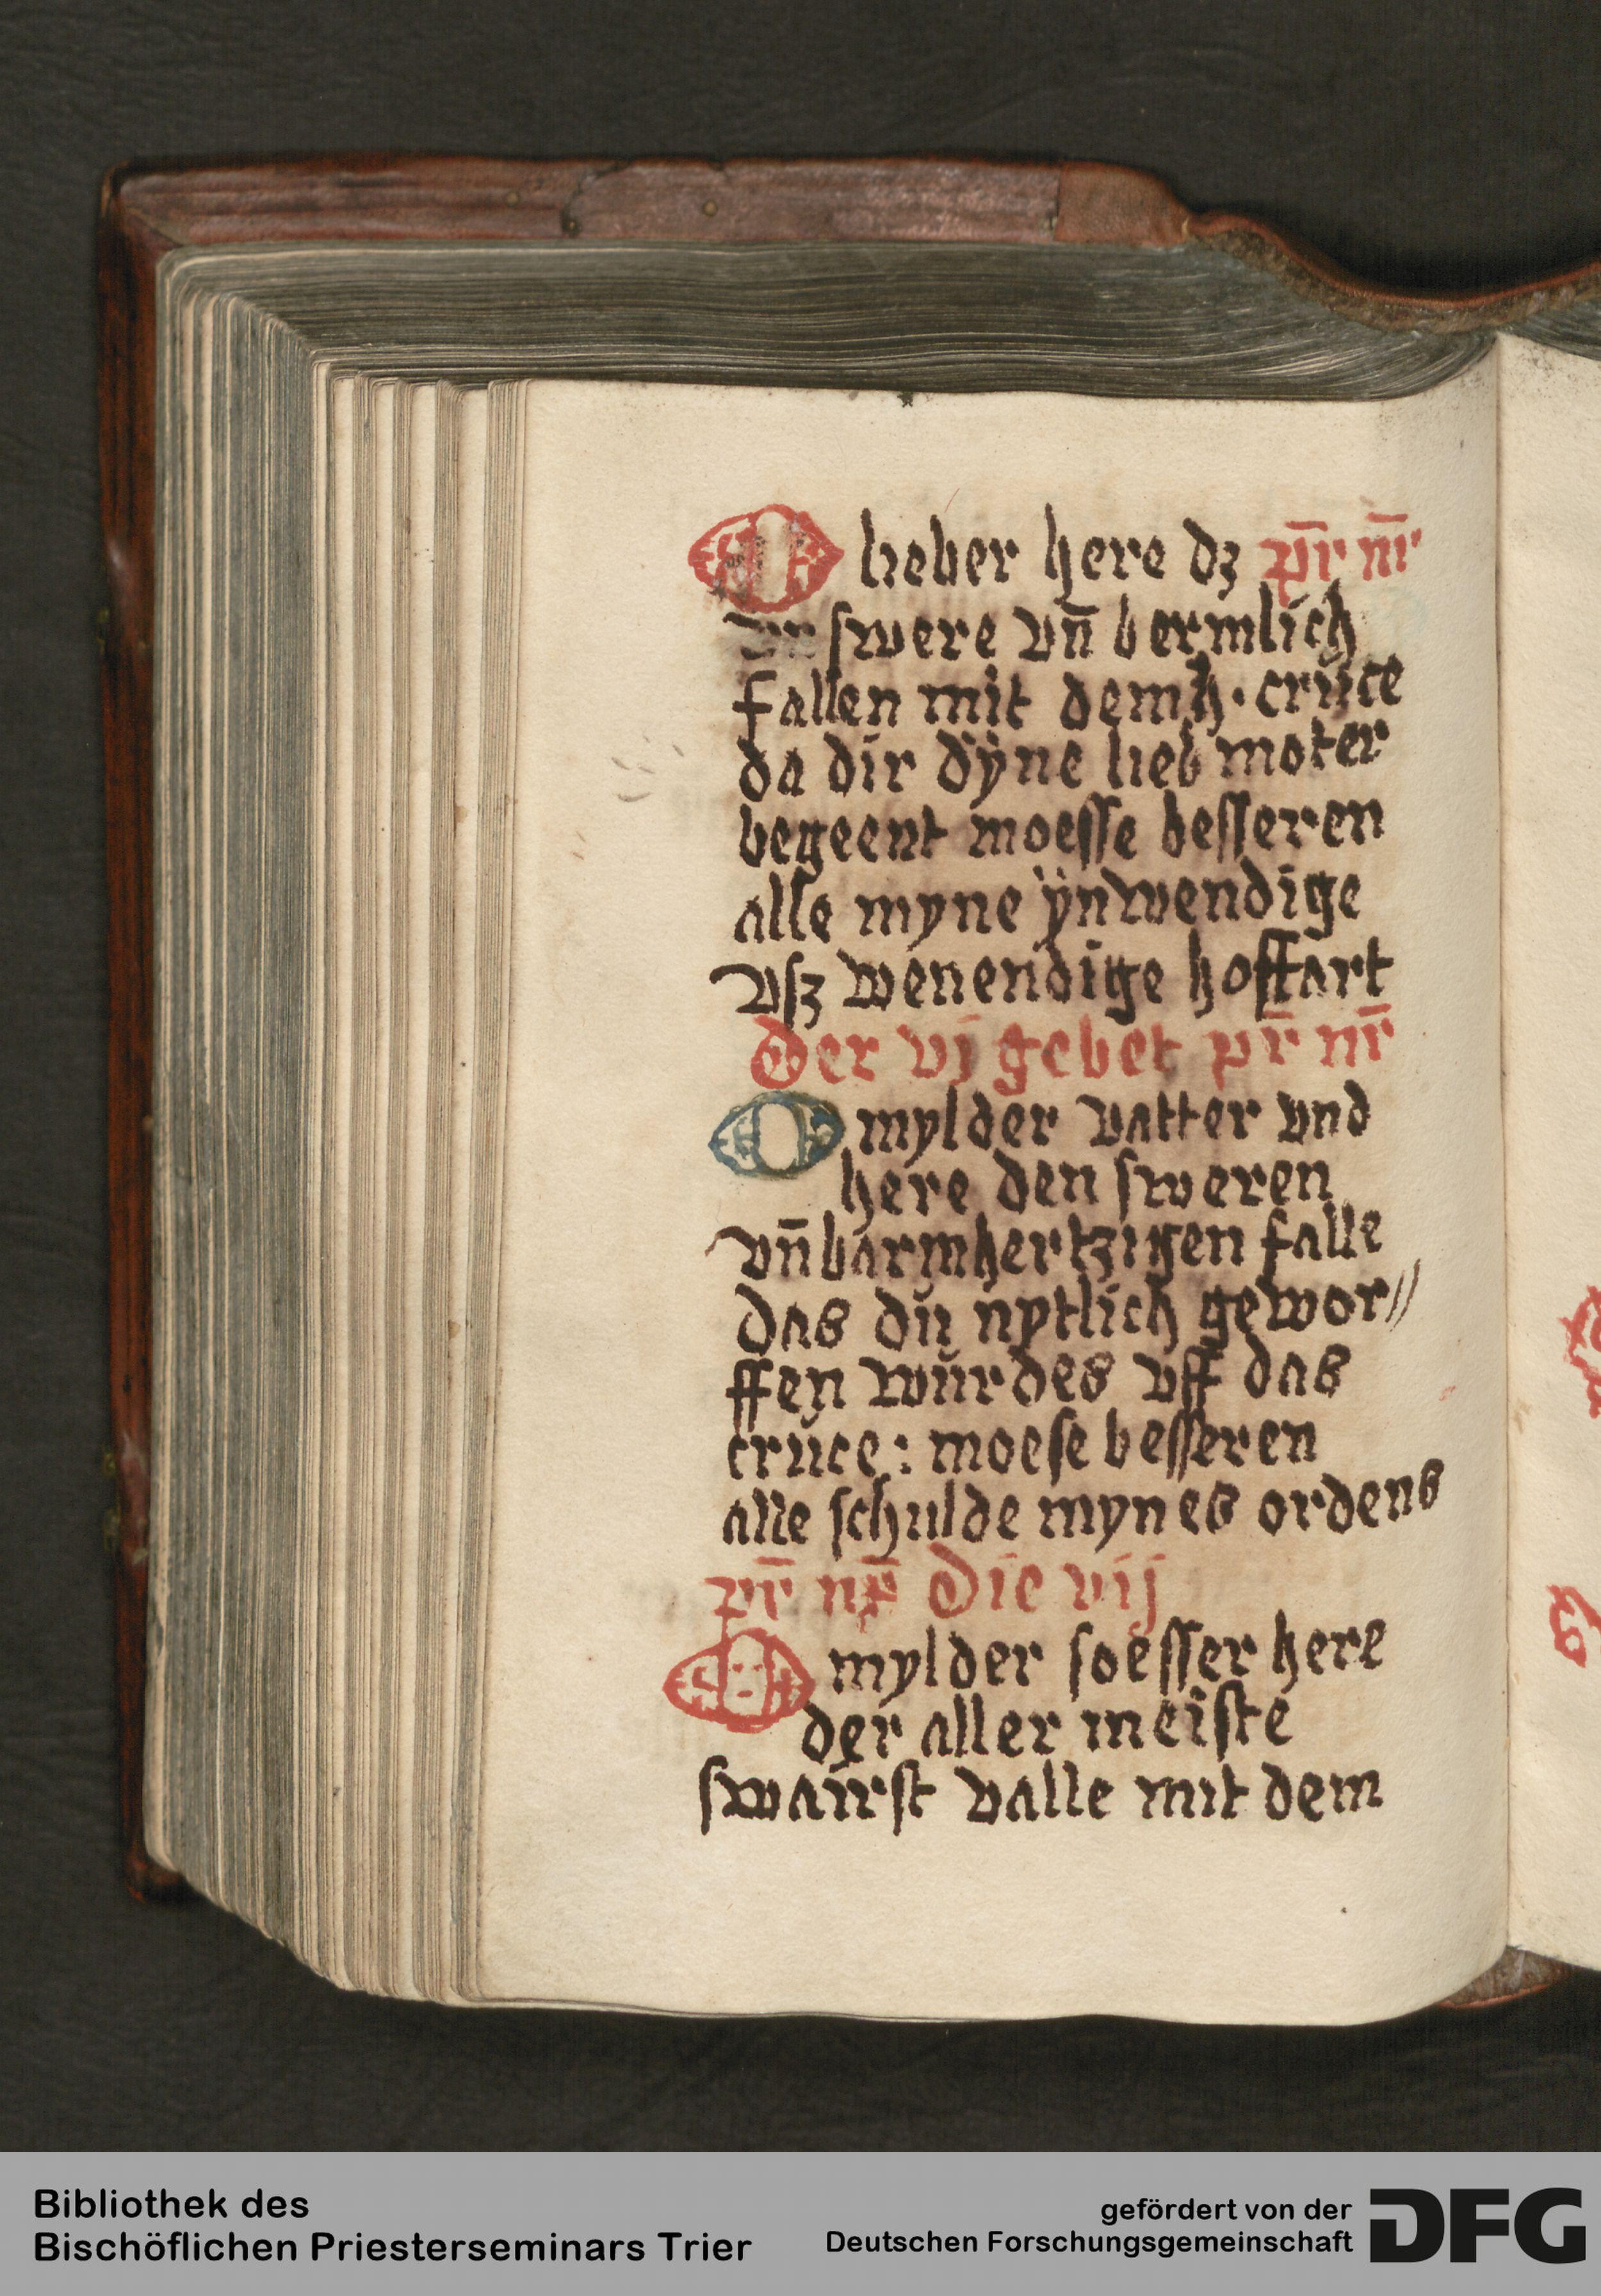 O lieber here dz pr̄ nr̄
swere vn̄ bermlich
fallen mit dem h. crüce
da dir dÿne lieb moter
begeent moesse besseren
alle myne ÿnwendige
vsz wenendige hoffart
der vj gebet pr̄ nr̄
O mylder vatter vnd
here den sweren
vn̄barmhertzigen falle
das dü nytlich gewor//
ffen würdes vff das
crüce: moese besseren
alle schulde mynes ordens
pr̄ nr̄ Die vij
O mylder soesser here
der aller meiste
swairst valle mit dem
Bibliothek des
Bischöflichen Priesterseminars Trier
gefördert von der
Deutschen Forschungsgemeinschaft
DFG